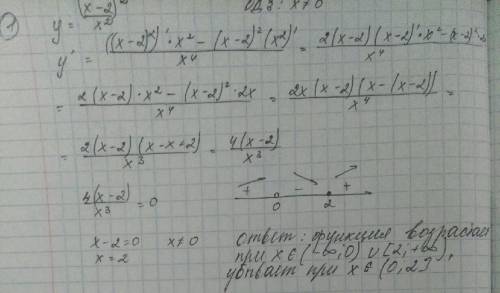 ① y = (x-2)²/x² ОДЗ: x≠0
y' = (((x-2)²)'·x² - (x-2)²(x²)')/x⁴ = (2(x-2)(x-2)'·x² - (x-2)²·2x)/x⁴
= (2(x-2)·x² - (x-2)²·2x)/x⁴ = (2x(x-2)(x-(x-2)))/x⁴ =
= (2(x-2)(x-x+2))/x³ = 4(x-2)/x³
4(x-2)/x³ = 0
+ - +
0 2
x-2=0 x≠0
x=2
ответ: функция возрастает
при x∈(-∞;0)∪[2;+∞),
убывает при x∈(0,2]